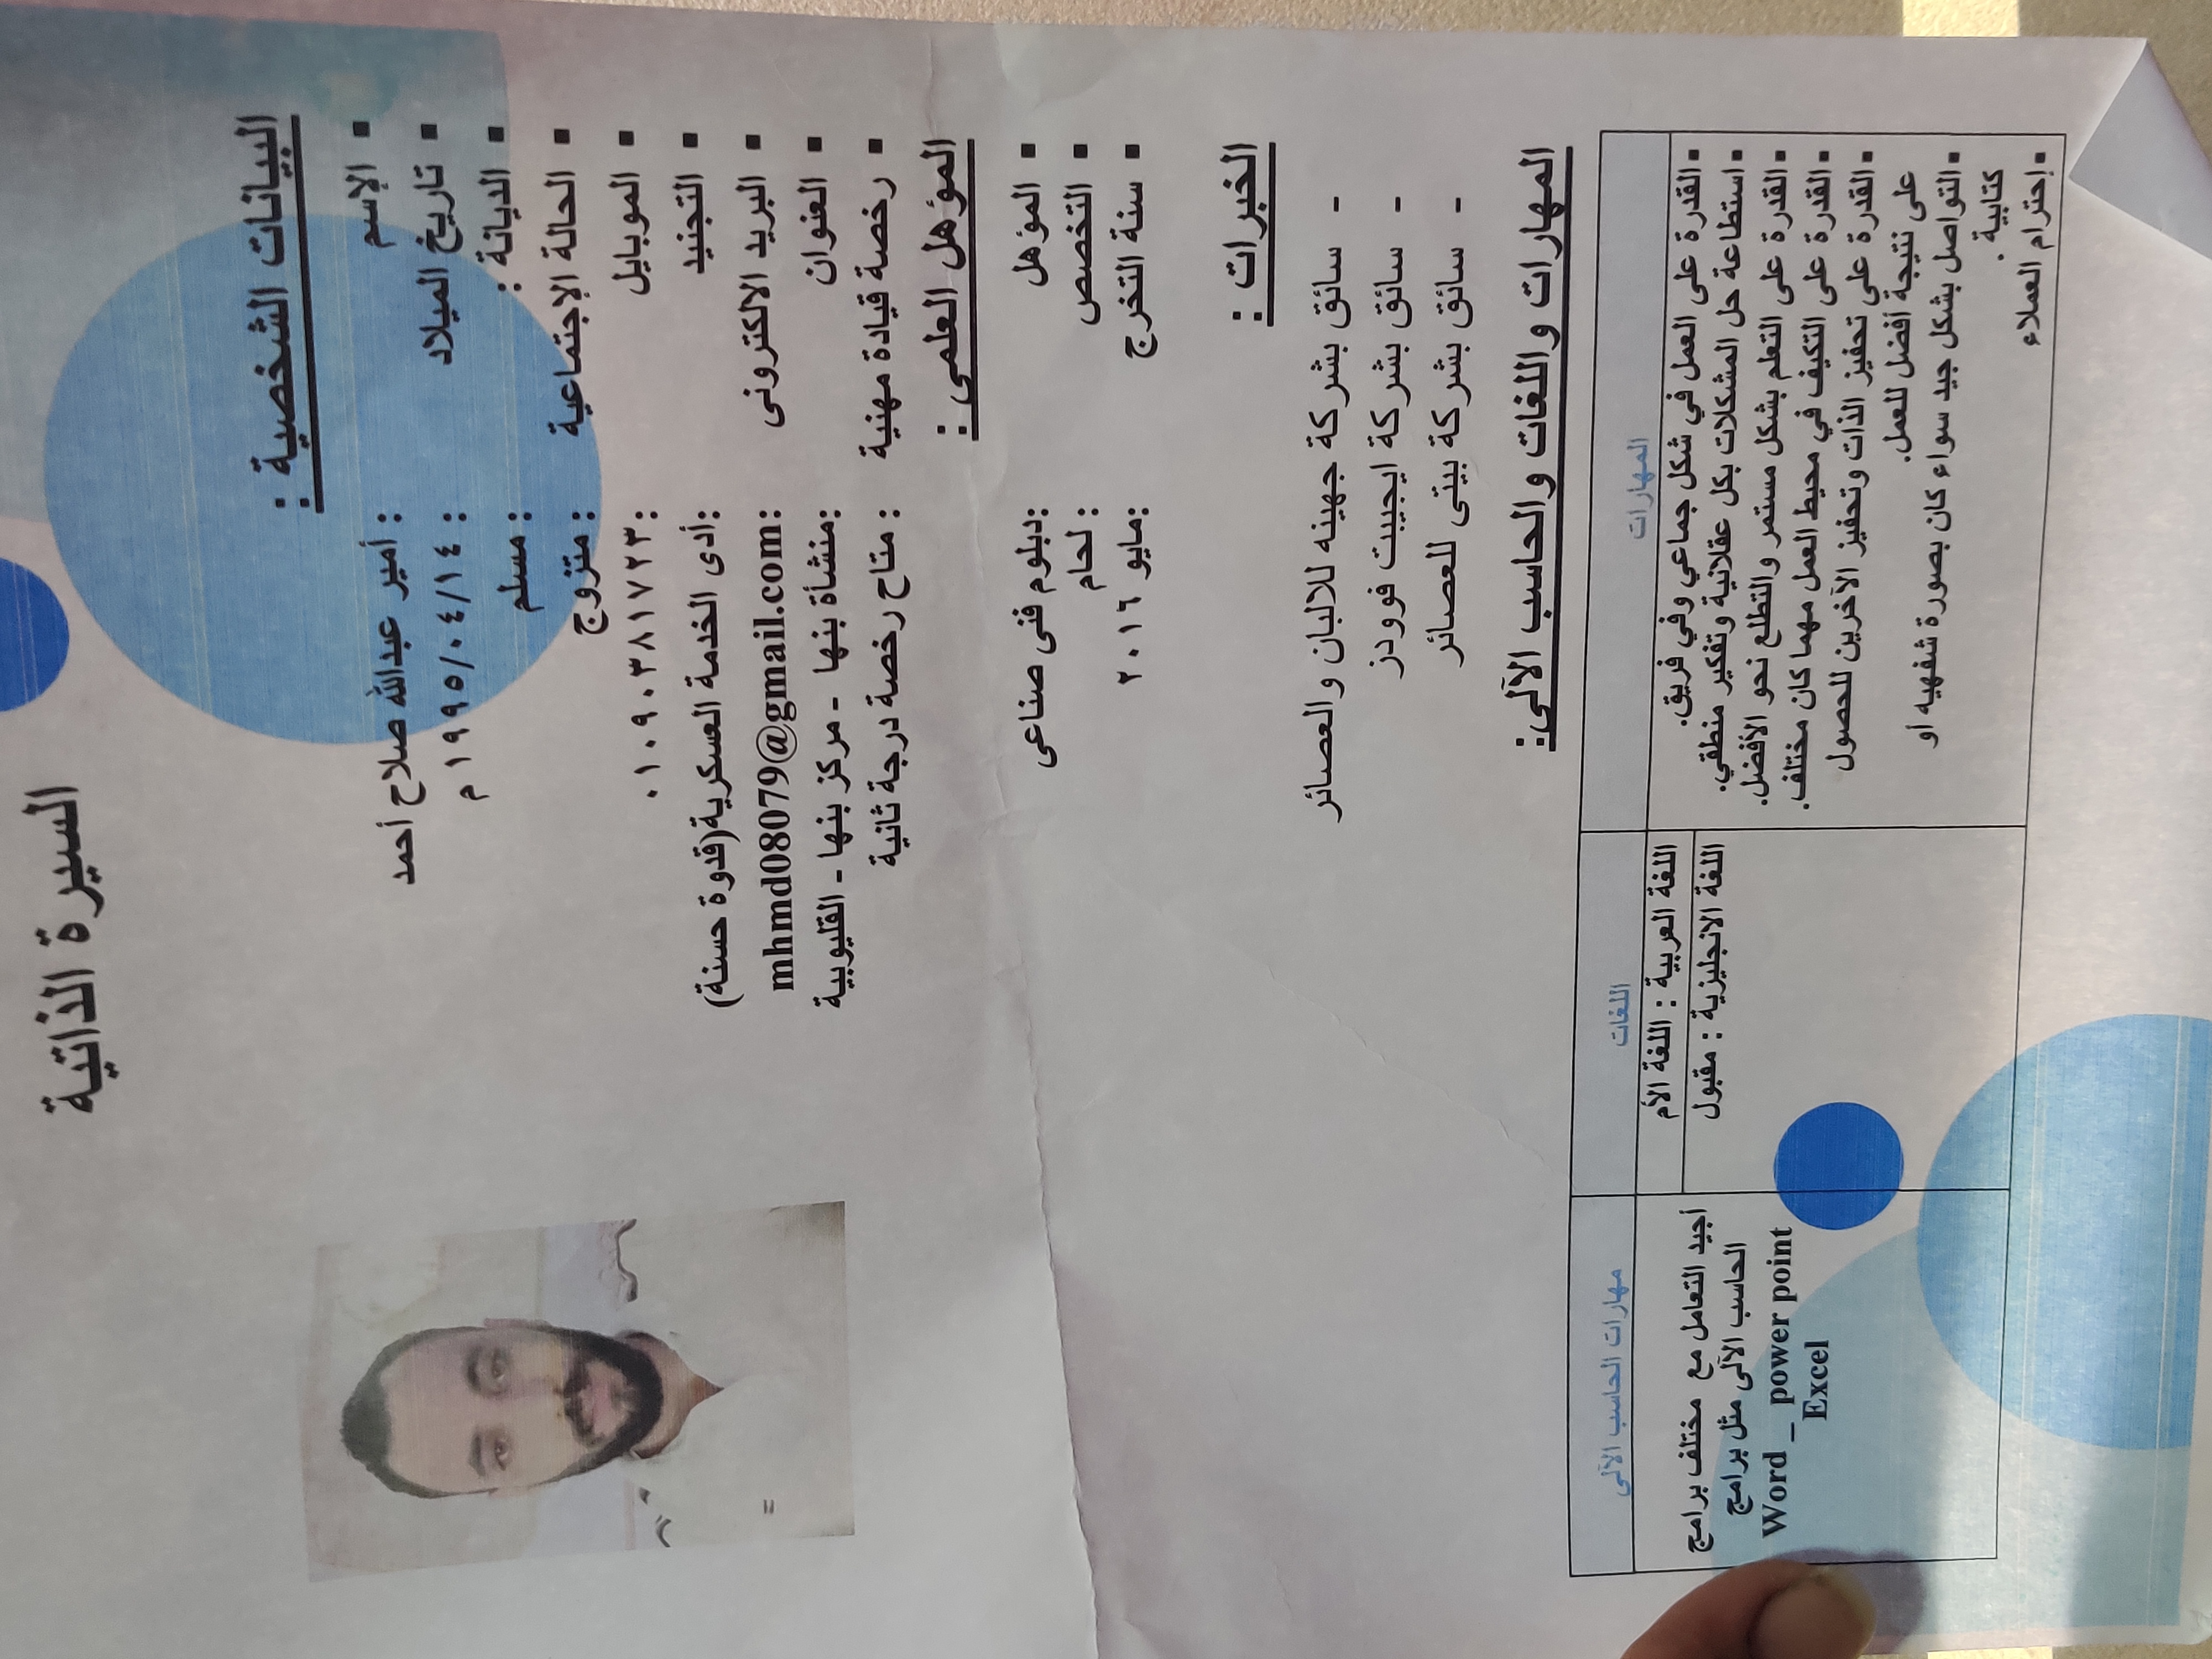 السيرة الذاتية
البيانات الشخصية :
▪ الإسم : أمير عبدالله صلاح أحمد
▪ تاريخ الميلاد : ١٩٩٥/٠٤/١٤ م
▪ الديانة : : مسلم
▪ الحالة الإجتماعية : متزوج
▪ الموبايل : ٠١٠٩٠٣٨١٧٢٣
▪ التجنيد :أدى الخدمة العسكرية(قدوة حسنة)
▪ البريد الالكترونى :mhmd08079@gmail.com
▪ العنوان :منشأة بنها - مركز بنها - القليوبية
▪ رخصة قيادة مهنية : متاح رخصة درجة ثانية
المؤهل العلمى :
▪ المؤهل :دبلوم فنى صناعى
▪ التخصص : لحام
▪ سنة التخرج :مايو ٢٠١٦
الخبرات :
- سائق بشركة جهينه للالبان والعصائر
- سائق بشركة ايجيبت فوودز
- سائق بشركة بيتى للعصائر
المهارات واللغات والحاسب الآلى:
المهارات
▪ القدرة على العمل في شكل جماعي وفي فريق.
▪ استطاعة حل المشكلات بكل عقلانية وتفكير منطقي.
▪ القدرة على التعلم بشكل مستمر والتطلع نحو الأفضل.
▪ القدرة على التكيف في محيط العمل مهما كان مختلف.
▪ القدرة على تحفيز الذات وتحفيز الآخرين للحصول
على نتيجة أفضل للعمل.
▪ التواصل بشكل جيد سواء كان بصورة شفهيه او
كتابية .
▪ إحترام العملاء
اللغات
اللغة العربية : اللغة الأم
اللغة الانجليزية : مقبول
مهارات الحاسب الآلى
أجيد التعامل مع مختلف برامج
الحاسب الآلى مثل برامج
Word _ power point
Excel